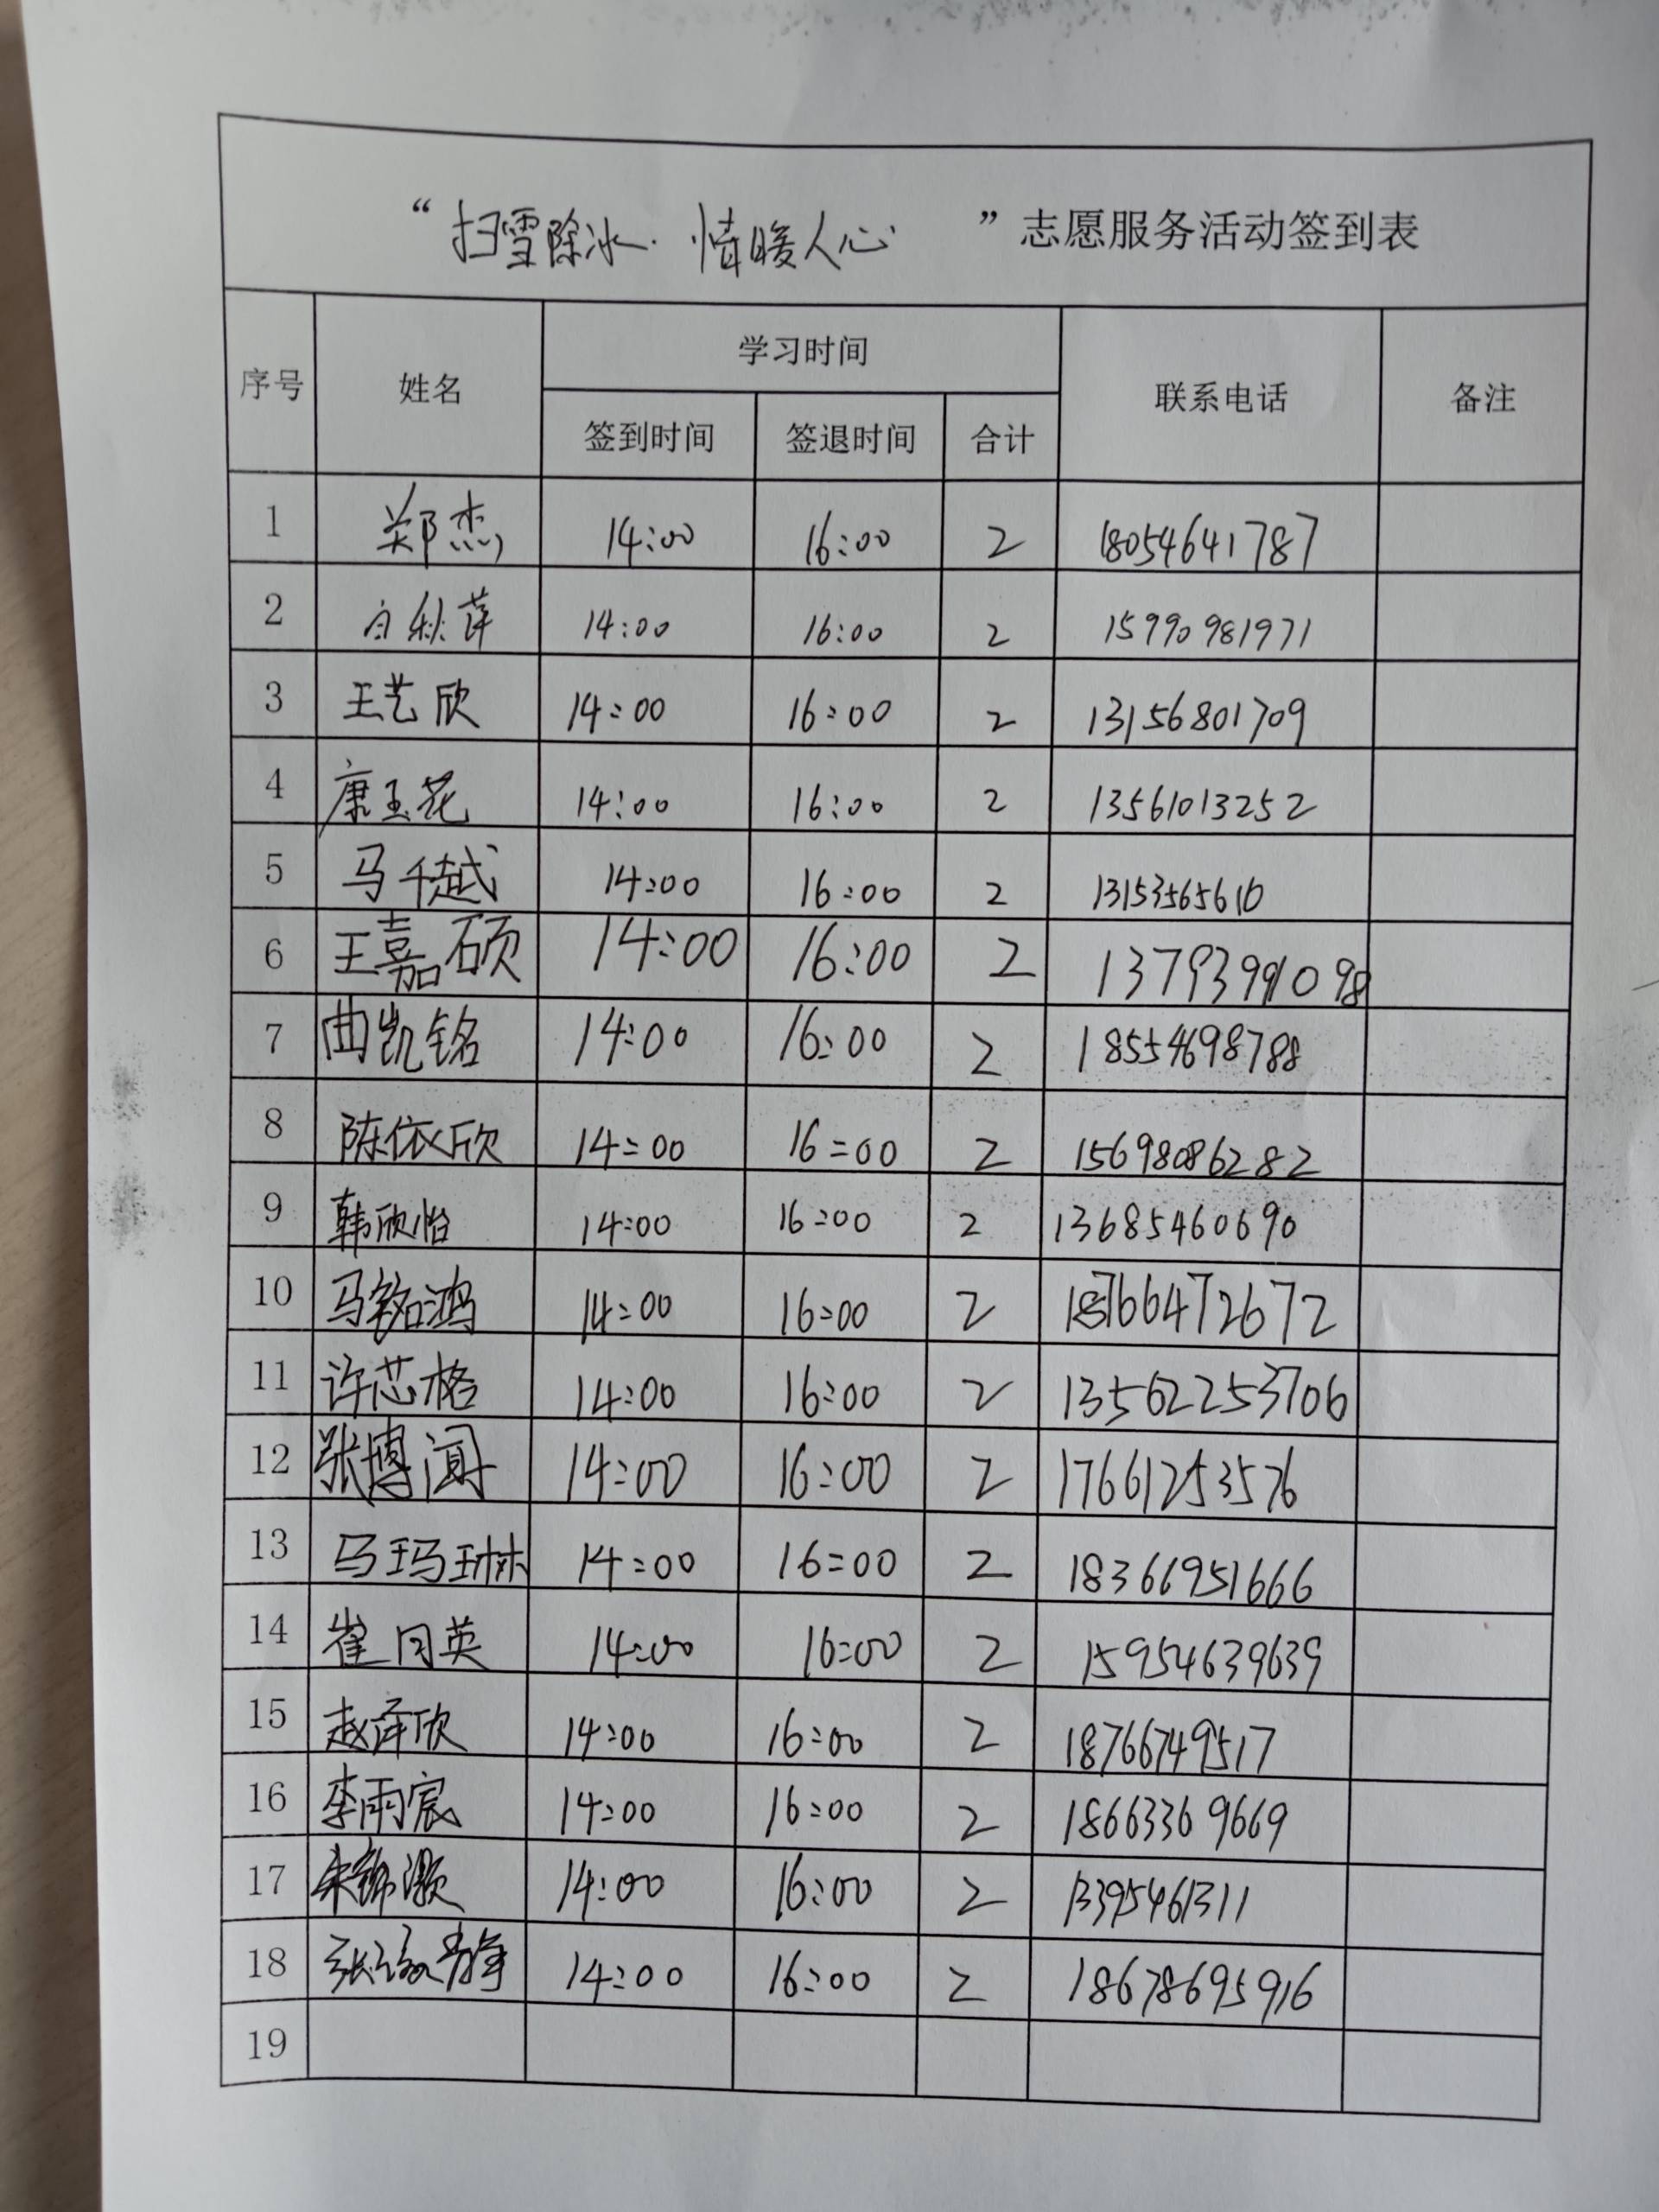 “扫雪除冰·情暖人心”志愿服务活动签到表
序号 姓名 学习时间 联系电话 备注
签到时间 签退时间 合计
1 郑杰 14:00 16:00 2 18054641787
2 白秋萍 14:00 16:00 2 15990981971
3 王艺欣 14:00 16:00 2 13156801709
4 康玉花 14:00 16:00 2 13561013252
5 马千越 14:00 16:00 2 13153565610
6 王嘉硕 14:00 16:00 2 13793991098
7 曲凯铭 14:00 16:00 2 18554698788
8 陈依欣 14:00 16:00 2 15698086282
9 韩欣怡 14:00 16:00 2 13685460690
10 马铭鸿 14:00 16:00 2 18766472672
11 许芯格 14:00 16:00 2 13562253706
12 张博闻 14:00 16:00 2 17661253576
13 马玛琳 14:00 16:00 2 18366951666
14 崔月英 14:00 16:00 2 15954639639
15 赵泽欣 14:00 16:00 2 18766749517
16 李雨宸 14:00 16:00 2 18663369669
17 朱锦灏 14:00 16:00 2 13395461311
18 张 静 14:00 16:00 2 18678695916
19